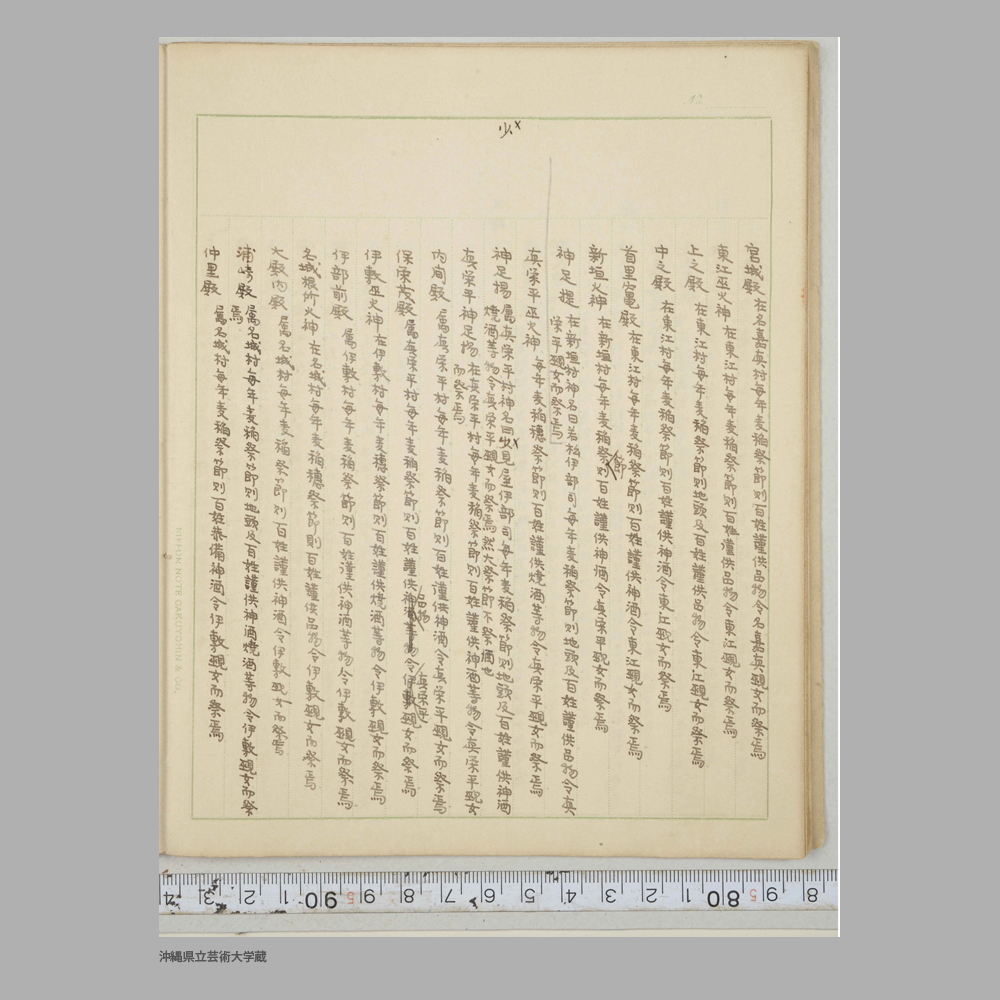 宮城殿 在名嘉真村毎年麦稲祭節則百姓謹供品物令名嘉真覡女而祭焉
東江巫火神 在東江村毎年麦稲祭節則百姓謹供品物令東江覡女而祭焉
上之殿 在東江村毎年麦稲祭節則地頭及百姓謹供品物令東江覡女而祭焉
中之殿 在東江村毎年麦稲祭節則百姓謹供神酒令東江覡女而祭焉
首里竃殿 在東江村毎年麦稲祭節則百姓謹供神酒令東江覡女而祭焉
新垣火神 在新垣村毎年麦稲祭節則百姓謹供神酒令真栄平覡女而祭焉
節
神足 在新垣村神名曰若松伊部司毎年麦稲祭節則地頭及百姓謹供品物令真
栄平覡女而祭焉
真栄平巫火神 毎年麦稲穂祭節則百姓謹供焼酒等物令真栄平覡女而祭焉
少x
神足揚 属真栄平村神名曰出見屋伊部司毎年麦稲祭節則地頭及百姓謹供神酒
焼酒等物令真栄平覡女而祭焉然大祭節不祭侑也
真栄平神足揚 在真栄平村毎年麦稲祭節則百姓謹供神酒等物令真栄平覡女
而祭焉
内間殿 属真栄平村毎年麦稲祭節則百姓謹供神酒令真栄平覡女而祭焉
保栄茂殿 属真栄平村毎年麦稲祭節則百姓謹供神酒等物令伊敷覡女而祭焉
品物
真栄平
伊敷巫火神 在伊敷村毎年麦穂祭節則百姓謹供焼酒等物令伊敷覡女而祭焉
伊部前殿 属伊敷村毎年麦稲祭節則百姓謹供神酒等物令伊敷覡女而祭焉
名城根所火神 在名城村毎年麦稲穂祭節則百姓謹供品物令伊敷覡女而祭焉
大殿内殿 属名城村毎年麦稲祭節則百姓謹供神酒令伊敷覡女而祭焉
浦崎殿 属名城村毎年麦稲祭節則地頭及百姓謹供神酒焼酒等物令伊敷覡女而祭
焉
仲里殿 属名城村毎年麦稲祭節則百姓恭備神酒令伊敷覡女而祭焉
NIHON NOTE GAKUYOHIN & CO.
4 3 2 1 90 5 9 8 7 6 5 4 3 2 1 80 5 9 8
沖縄県立芸術大学蔵